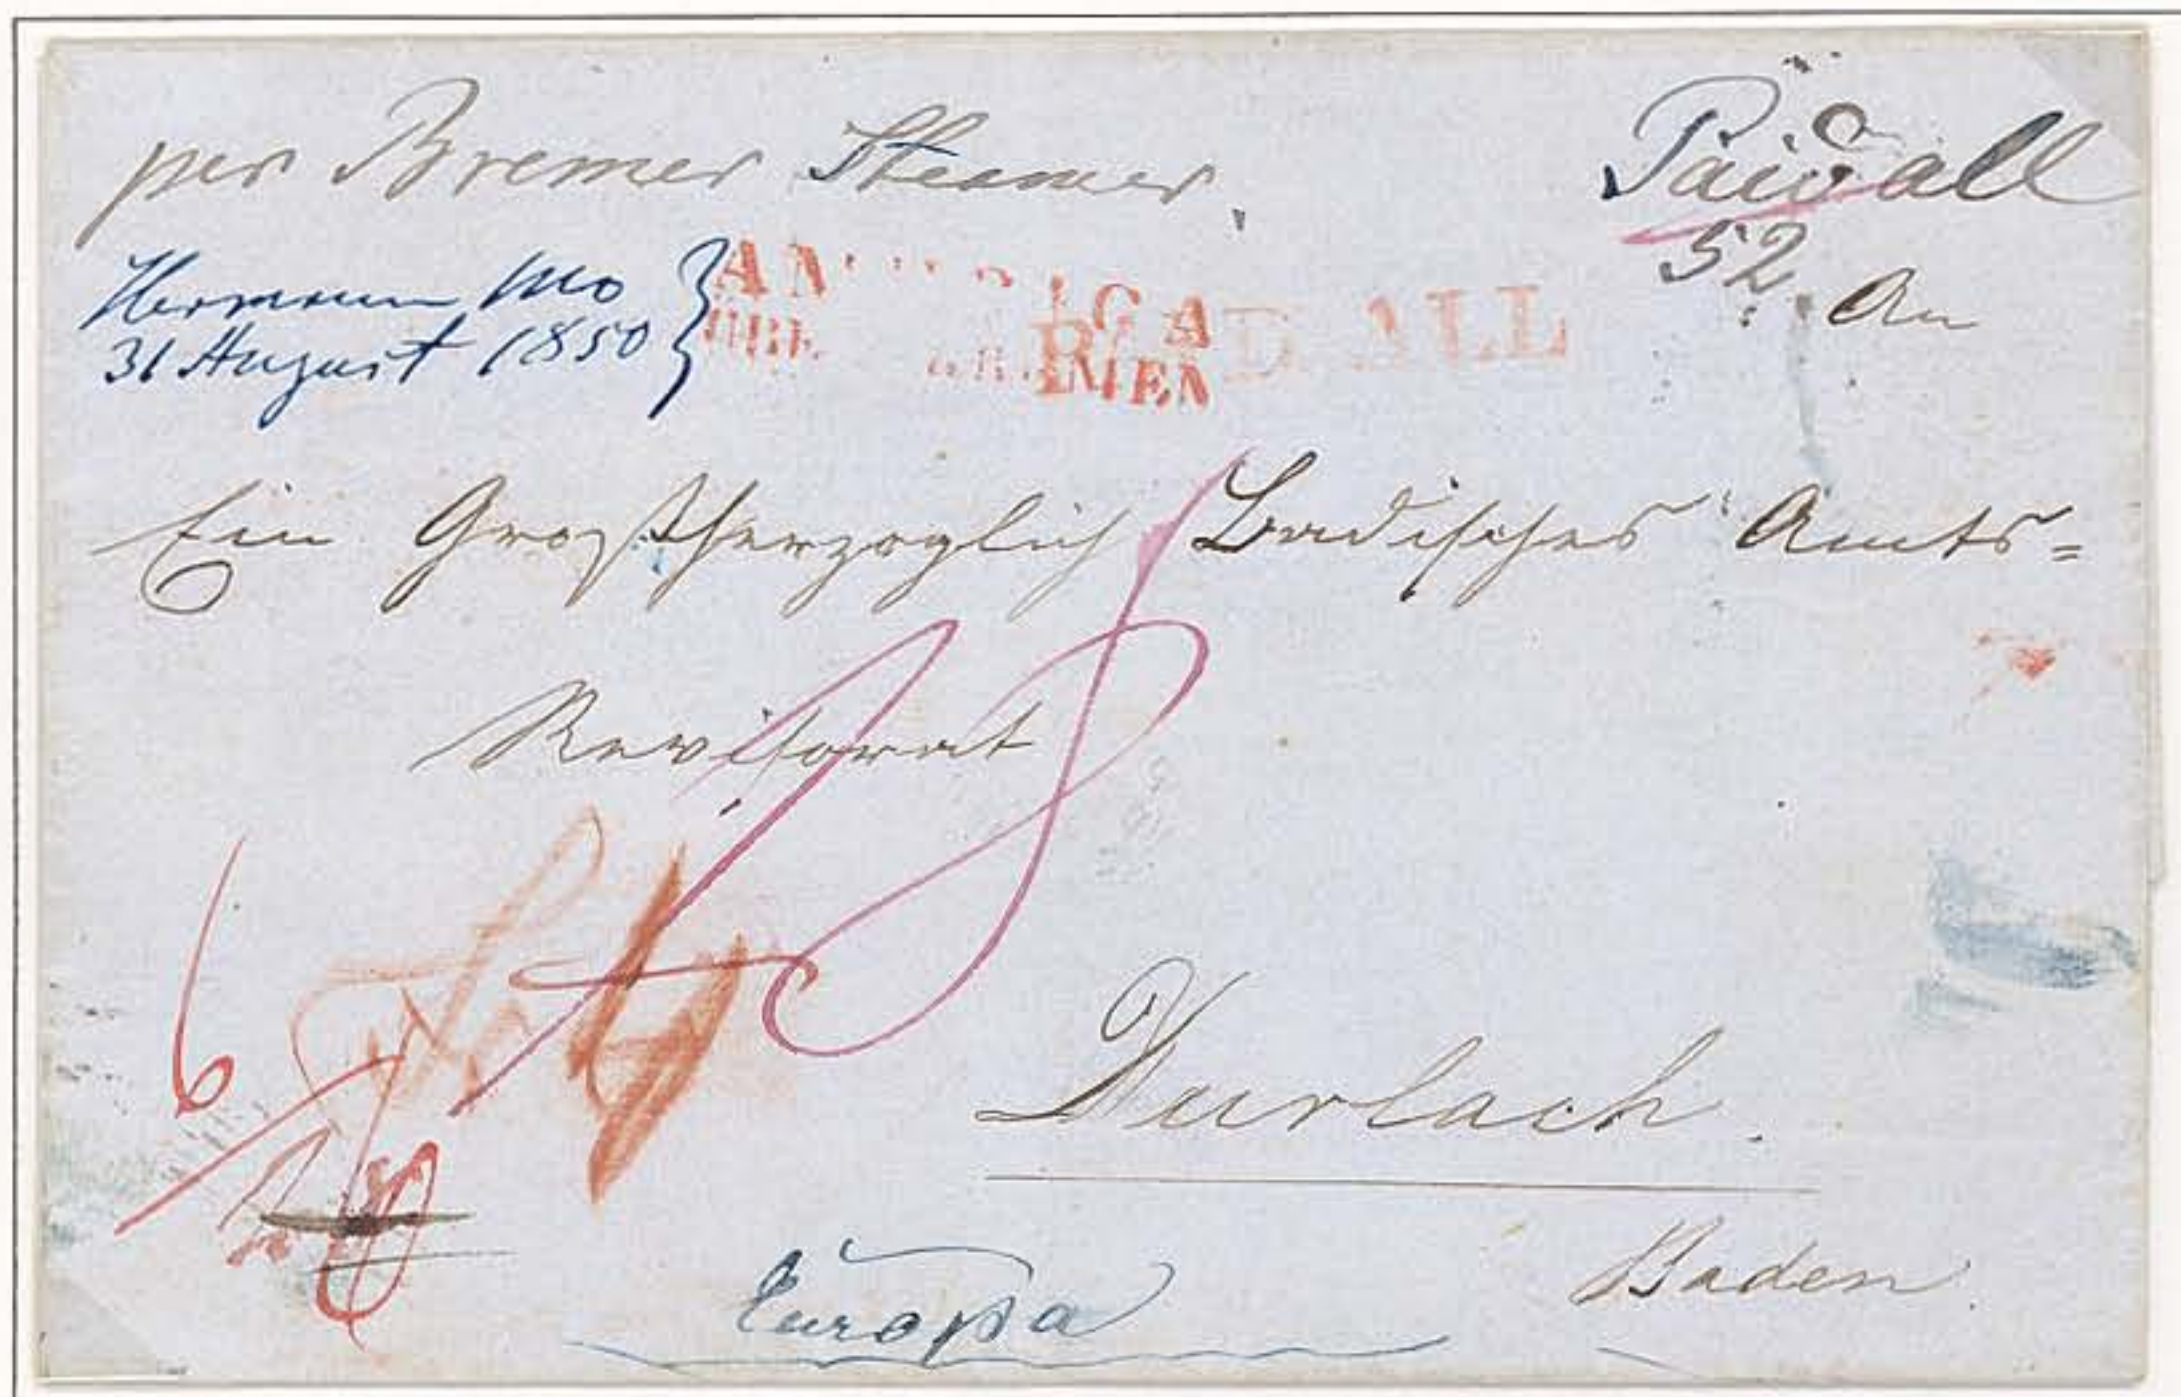 per Bremer Steamer.
Paid all
52
Hermann Mo
31 August 1850
AMERICA
UBER BREMEN
PAID ALL
An
Ein Großherzoglich Badisches Amts=
Revisorat
18
6
Durlach.
Baden
Europa